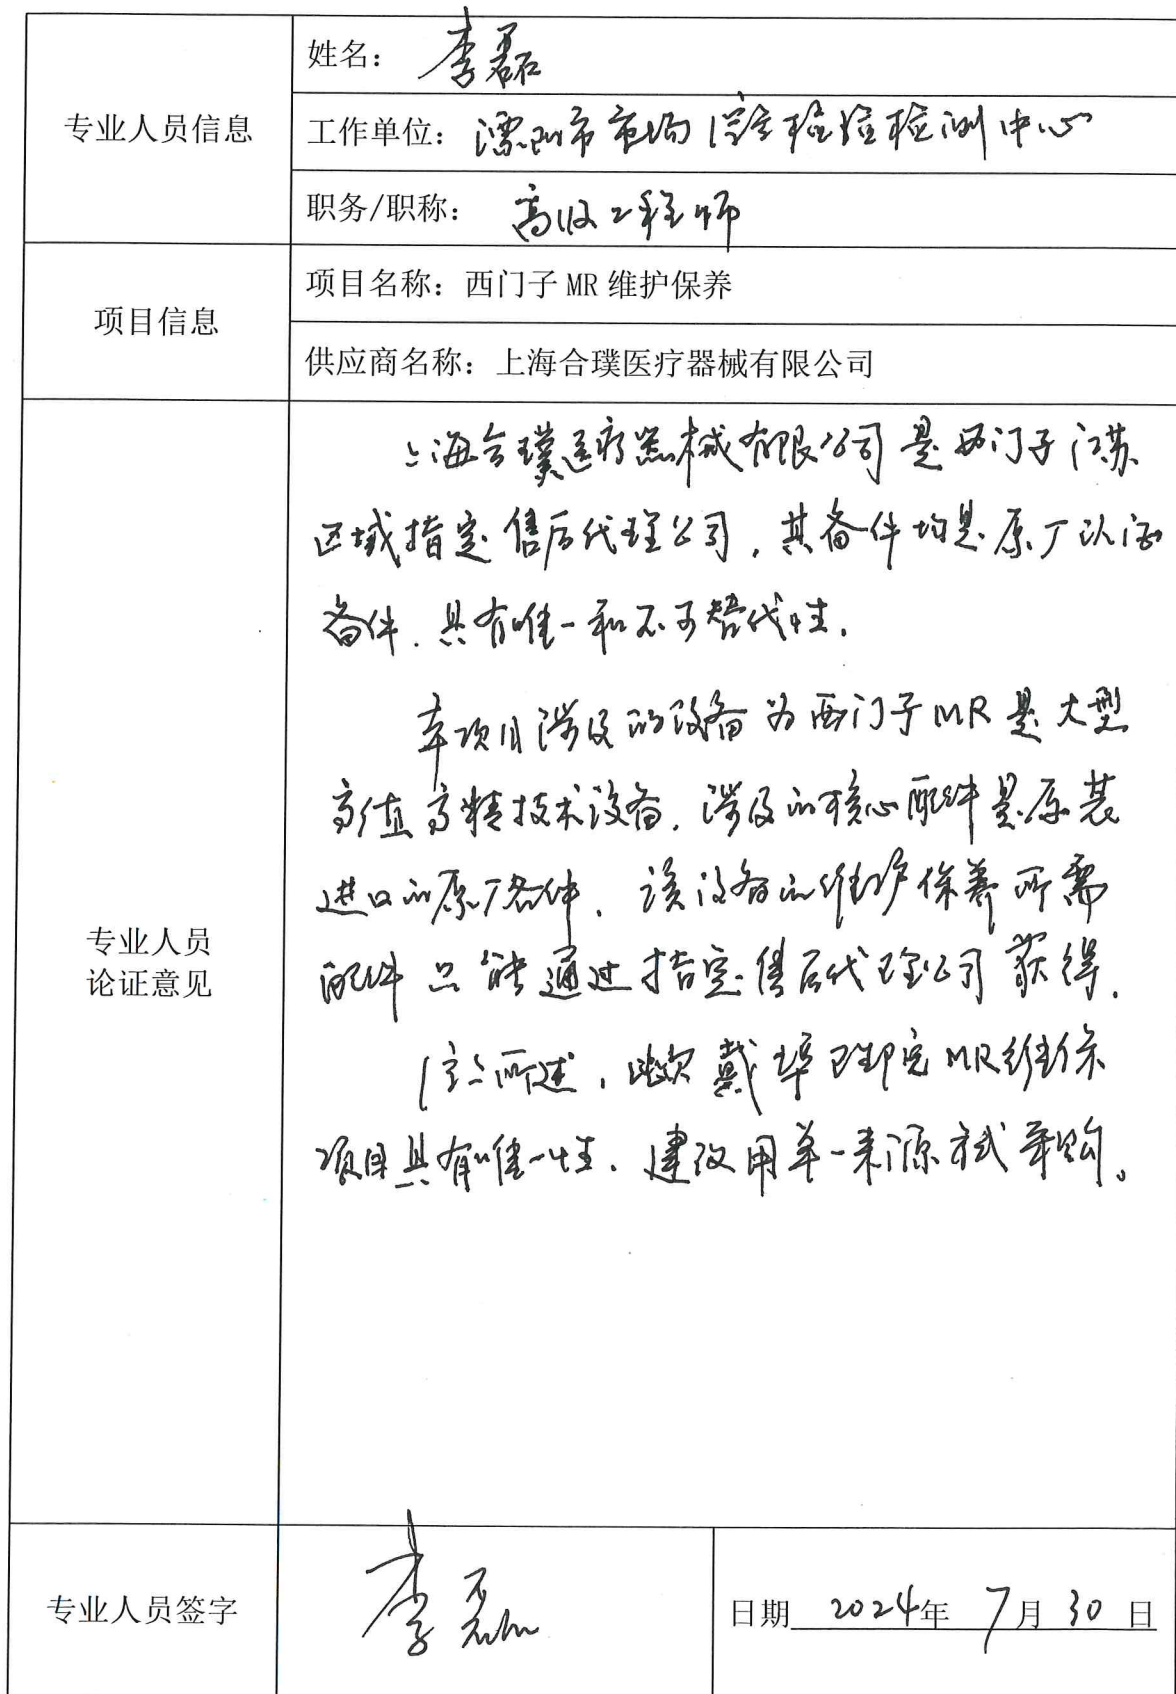 专业人员信息
姓名：李磊
工作单位：溧阳市市场综合检验检测中心
职务/职称：高级工程师
项目信息
项目名称：西门子 MR 维护保养
供应商名称：上海合璞医疗器械有限公司
专业人员
论证意见
上海合璞医疗器械有限公司是西门子江苏
区域指定售后代理公司，其备件均是原厂认证
备件，具有唯一和不可替代性。
本项目涉及的设备为西门子MR是大型
高值高精技术设备，涉及的核心配件是原装
进口的原厂备件，该设备的维护保养所需
配件只能通过指定售后代理公司获得。
综上所述，此次戴埠医院MR维保
项目具有唯一性，建议用单一来源方式采购。
专业人员签字
李磊
日期 2024年 7月 30 日